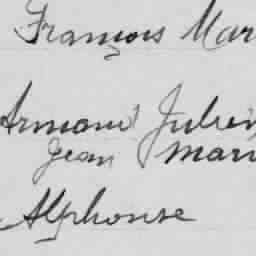 François Mar
Armand Julien
Jean Mari
Alphonse